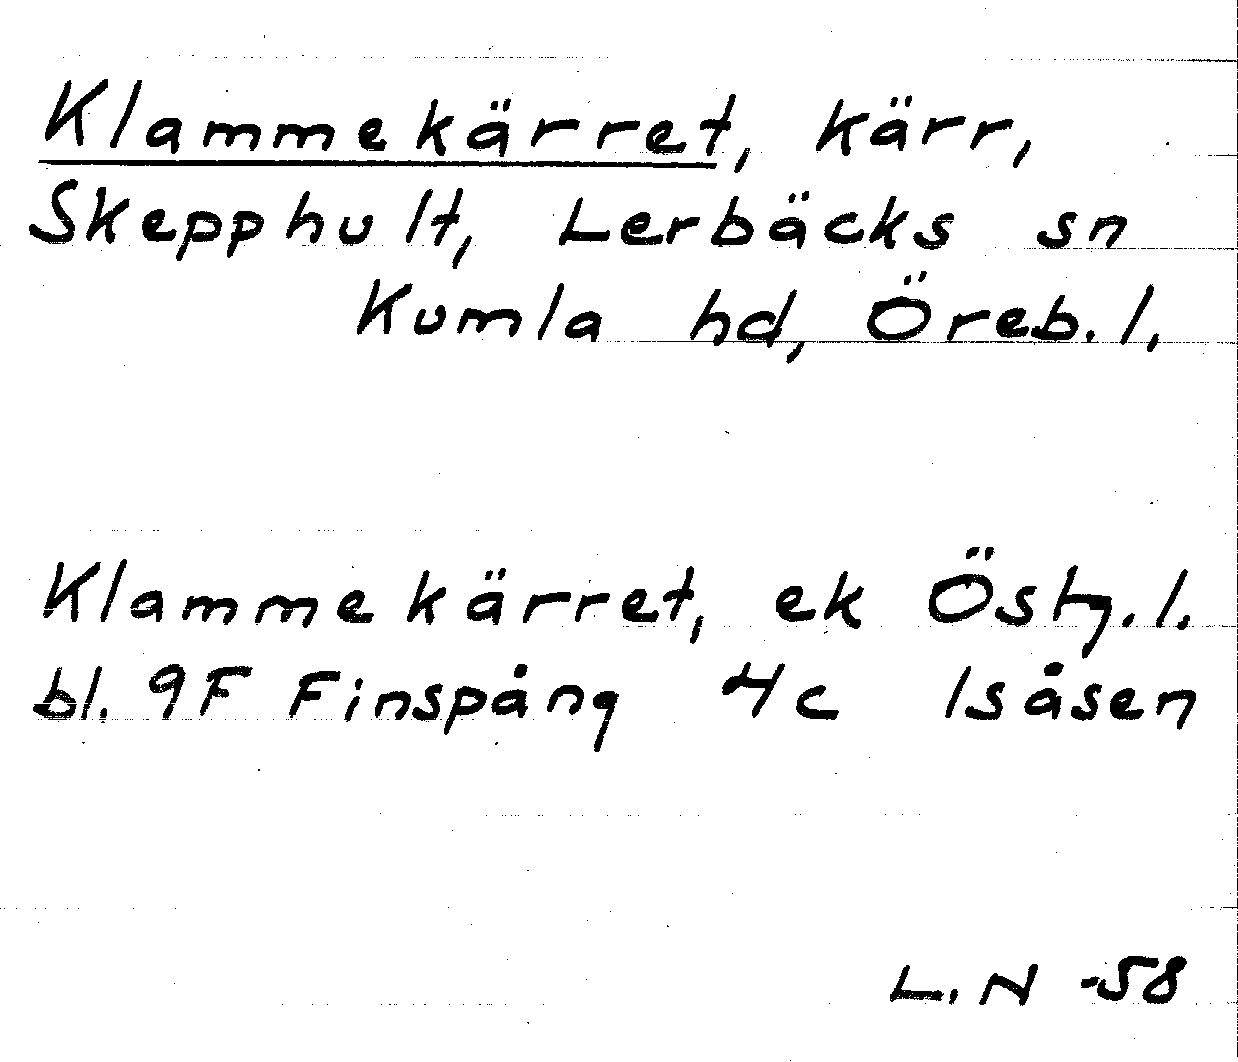 Klammekärret, kärr,
Skepphult, Lerbäcks sn
Kumla hd, Öreb. l.
Klammekärret, ek Östg. l.
bl. 9F Finspång 4c Isåsen
L. N -58